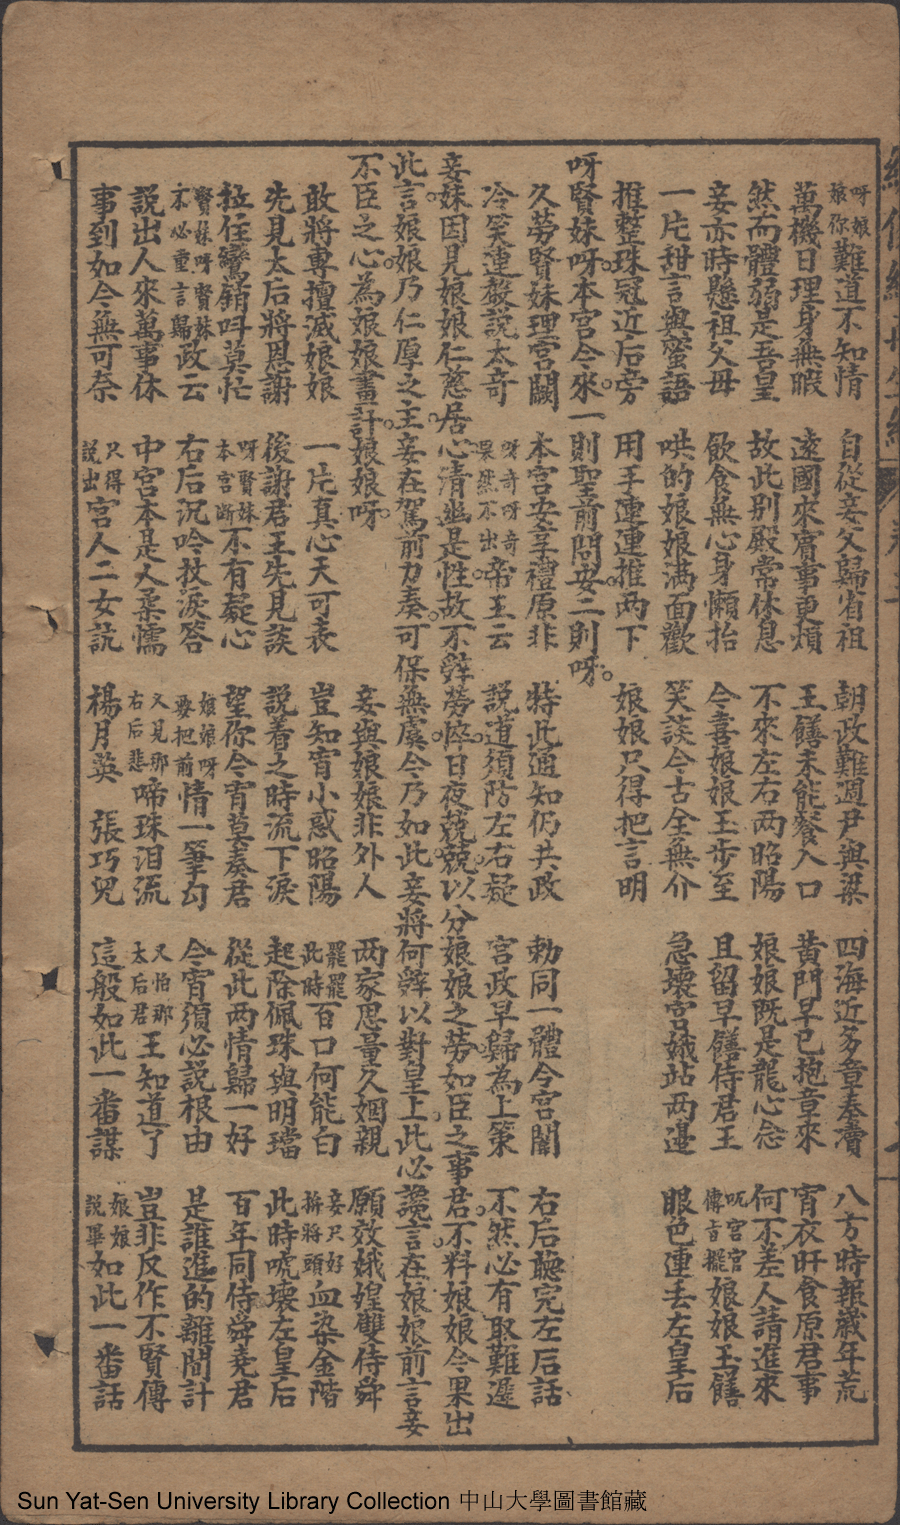 呀娘娘你難道不知情 自從妾父歸省祖 朝政難週尹與梁 四海近多章奏瀆 八方時報歲年荒
萬機日理身無暇 遠國來賓事更煩 王饍未能餐入口 黃門早已抱章來 宵衣旰食原君事
然而體弱是吾皇 故此别殿常休息 不來左右两昭陽 娘娘既是龍心念 何不差人請進來
妾亦時懸祖父母 飲食無心身懶抬 今喜娘娘玉步至 且留早饍侍君王 呃宮官傳旨擺娘娘玉饍
一片甜言與蜜語 哄的娘娘满面歡 笑談今古全無介 急壞宮娥站两邊 眼色連丢左皇后
推整珠冠近后旁 用手連連推两下 娘娘只得把言明
呀賢妹呀本宮今來一則聖前問安二則呀
久勞賢妹理宮闕 本宮安享禮原非 特此通知仍共政 勅同一體令宮闈 右后聽完左后話
冷笑連聲說太竒 呀竒呀竒果然不出帝王云 說道須防左右疑 宮政早歸為上策 不然必有取難遲
妾妹因見娘娘仁慈居心清幽是性故不辤勞悴日夜兢兢以分娘娘之勞如臣之事君不料娘娘今果出
此言娘娘乃仁厚之主妾在駕前力奏可保無虞今乃如此妾將何辤以對皇上此必讒言在娘娘前言妾
不臣之心為娘娘畫計娘娘呀 妾與娘娘非外人 两家思量久姻親 願效娥媓雙侍舜
敢將專擅滅娘娘 一片真心天可表 豈知宵小惑昭陽 罷罷此時百口何能白 妾只好拚將頭血染金階
先見太后將恩謝 後謝君王先見談 說着之時流下淚 起除佩珠與明璫 此時唬壞左皇后
拉住鸞綃呌莫忙 呀賢妹本宮断不有疑心 望你今宵莫奏君 從此两情歸一好 百年同侍舜堯君
賢妹呀賢妹不必重言歸政云 右后沉吟抆淚答 娘娘呀要把前情一筆勾 今宵須必說根由 是誰進的離間計
說出人來萬事休 中宮本是人柔懦 又見那右后悲啼珠泪流 又怕那太后君王知道了 豈非反作不賢傳
事到如今無可奈 只得說出宮人二女説 楊月英 張巧兒 這般如此一番謀 娘娘說畢如此一番話
Sun Yat-Sen University Library Collection 中山大學圖書館藏